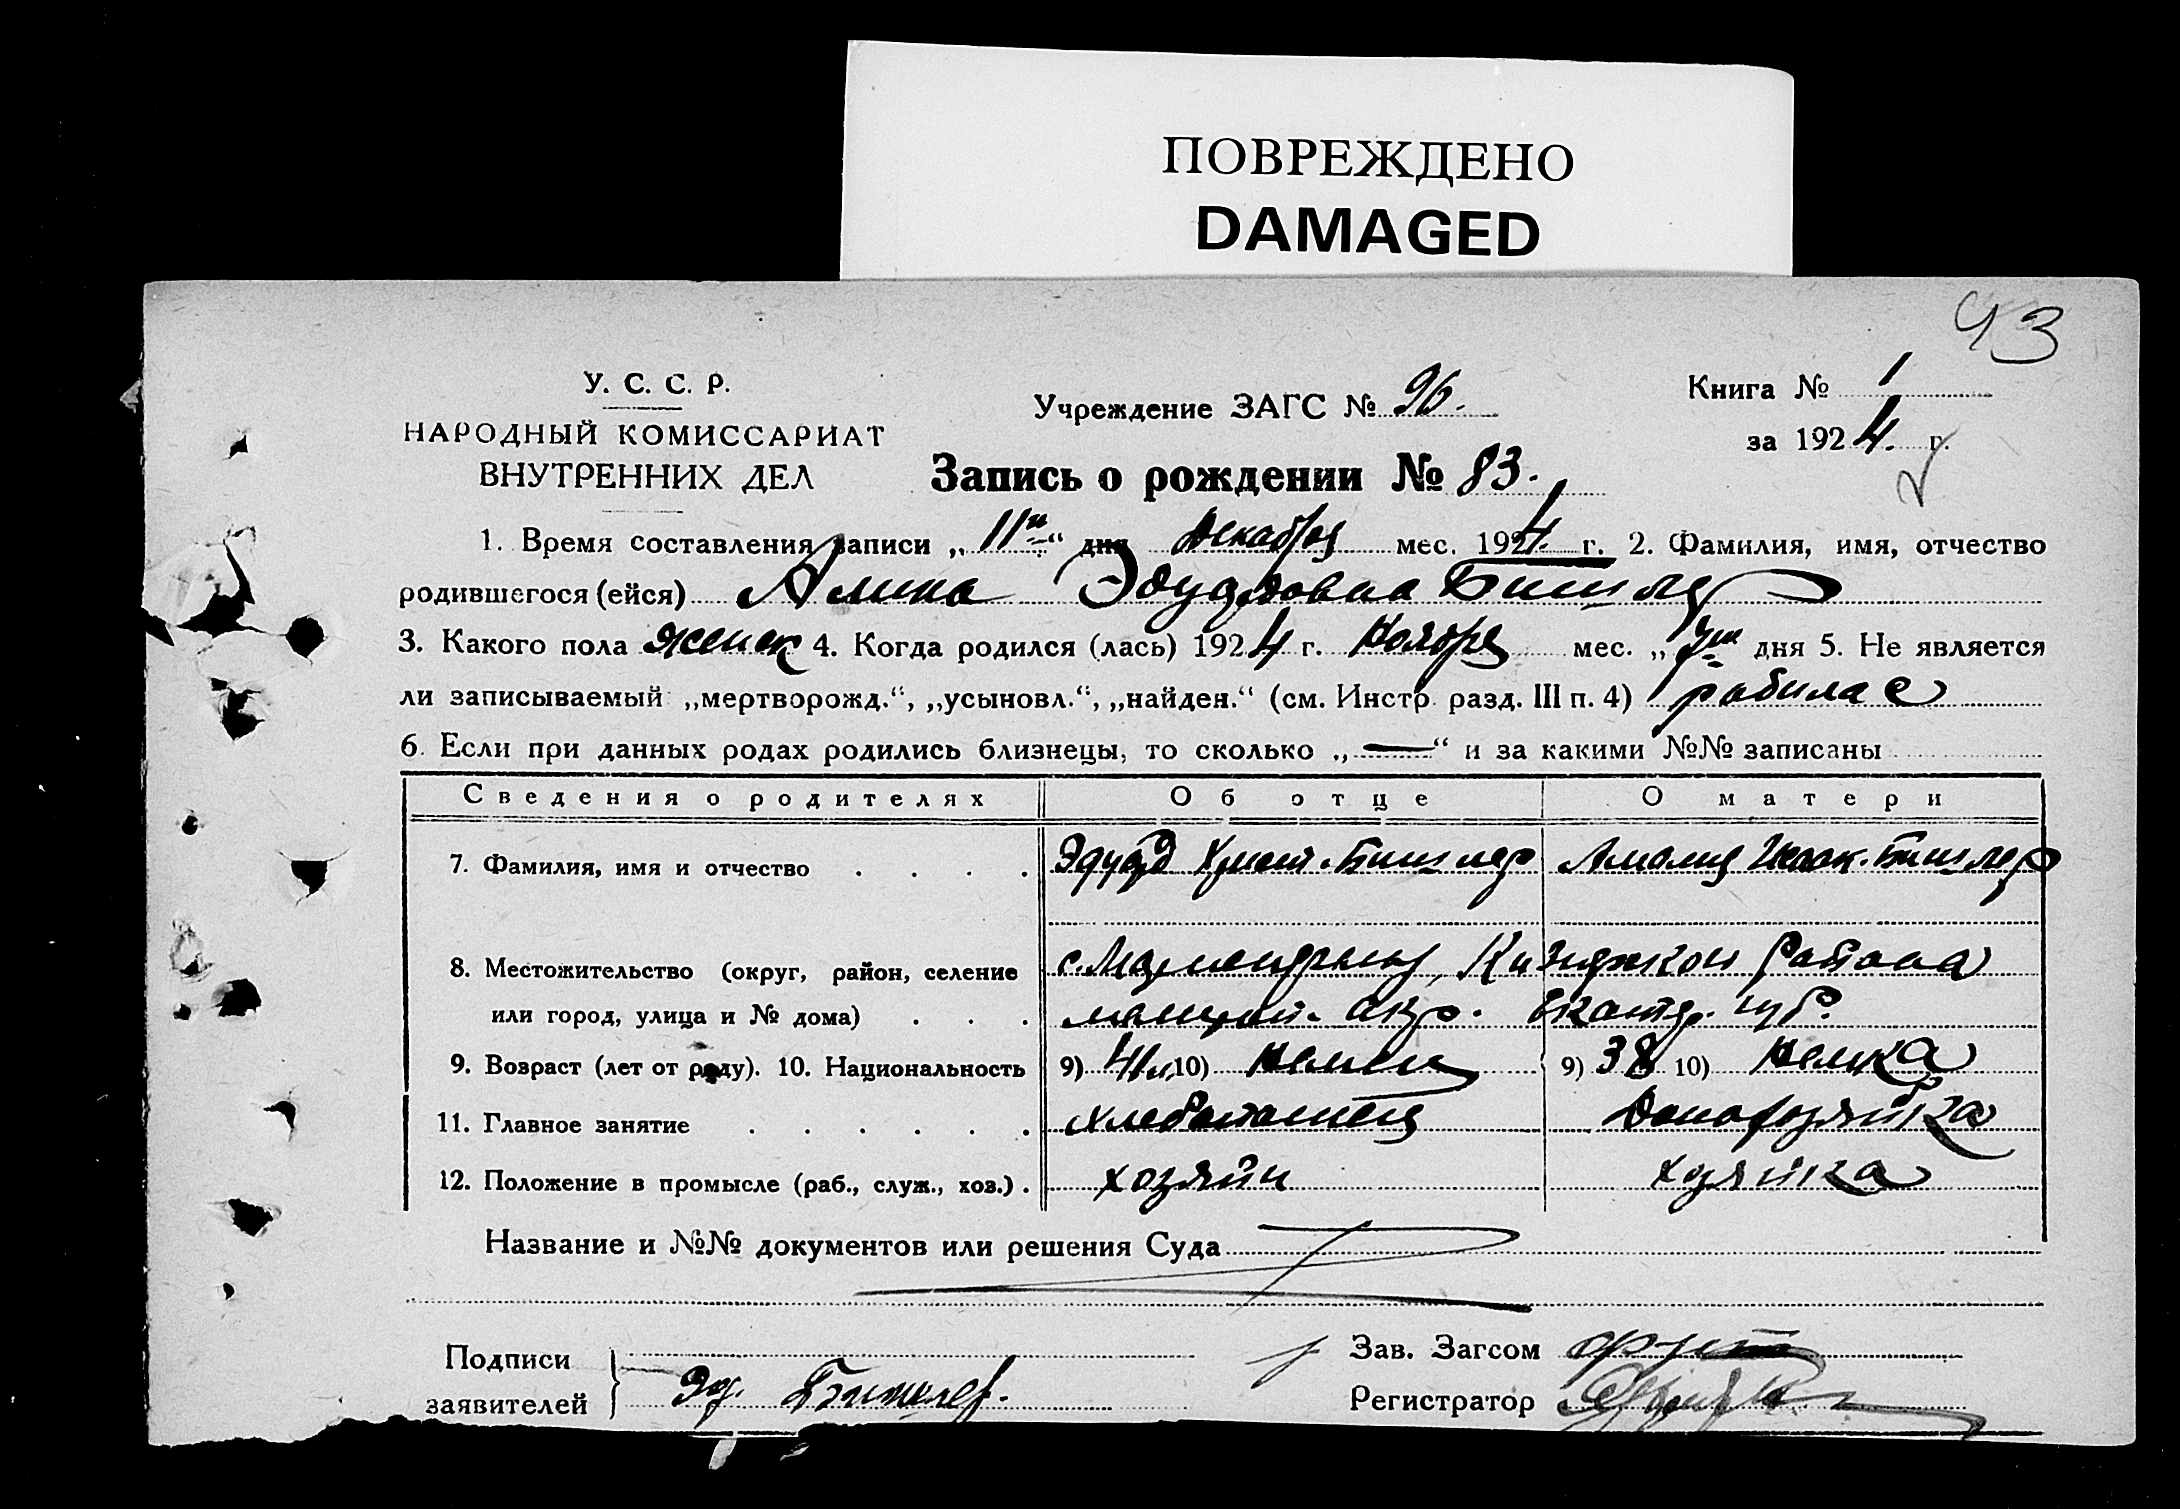 ПОВРЕЖДЕНО
DAMAGED
43
У. С. С. Р.
НАРОДНЫЙ КОМИССАРИАТ
ВНУТРЕННИХ ДЕЛ
Учреждение ЗАГС № 96.
Книга № 1
за 1924. г.
Запись о рождении № 83.
1. Время составления записи „11го“ дня Декабря мес. 1924 г. 2. Фамилия, имя, отчество
родившегося (ейся) Алина Эдуардовна Бишлер
3. Какого пола женск 4. Когда родился (лась) 1924 г. Ноября мес. „7го дня 5. Не является
ли записываемый „мертворожд.“, „усыновл.“, „найден.“ (см. Инстр. разд. III п. 4)
6. Если при данных родах родились близнецы, то сколько „—“ и за какими №№ записаны
Сведения о родителях Об отце О матери
7. Фамилия, имя и отчество . . . . Эдуард Христ. Бишлер Амалия Исаак. Бишлер
8. Местожительство (округ, район, селение района
или город, улица и № дома) . . . окр. Екатер. губ.
9. Возраст (лет от роду). 10. Национальность 9) 41 л. 10) Немец 9) 38 10) Немка
11. Главное занятие . . . . . . хлебопашец Домохозяйка
12. Положение в промысле (раб., служ., хоз.) . хозяин хозяйка
Название и №№ документов или решения Суда
Подписи
заявителей } Эд. Бишлер.
Зав. Загсом
Регистратор